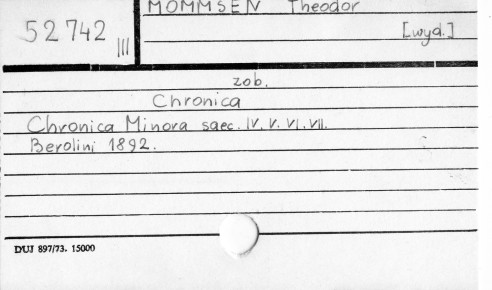 MOMMSEN Theodor
52742 III
[wyd.]
zob.
Chronica
Chronica Minora saec. IV. V. VI. VII.
Berolini 1892.
DUJ 897/73. 15000